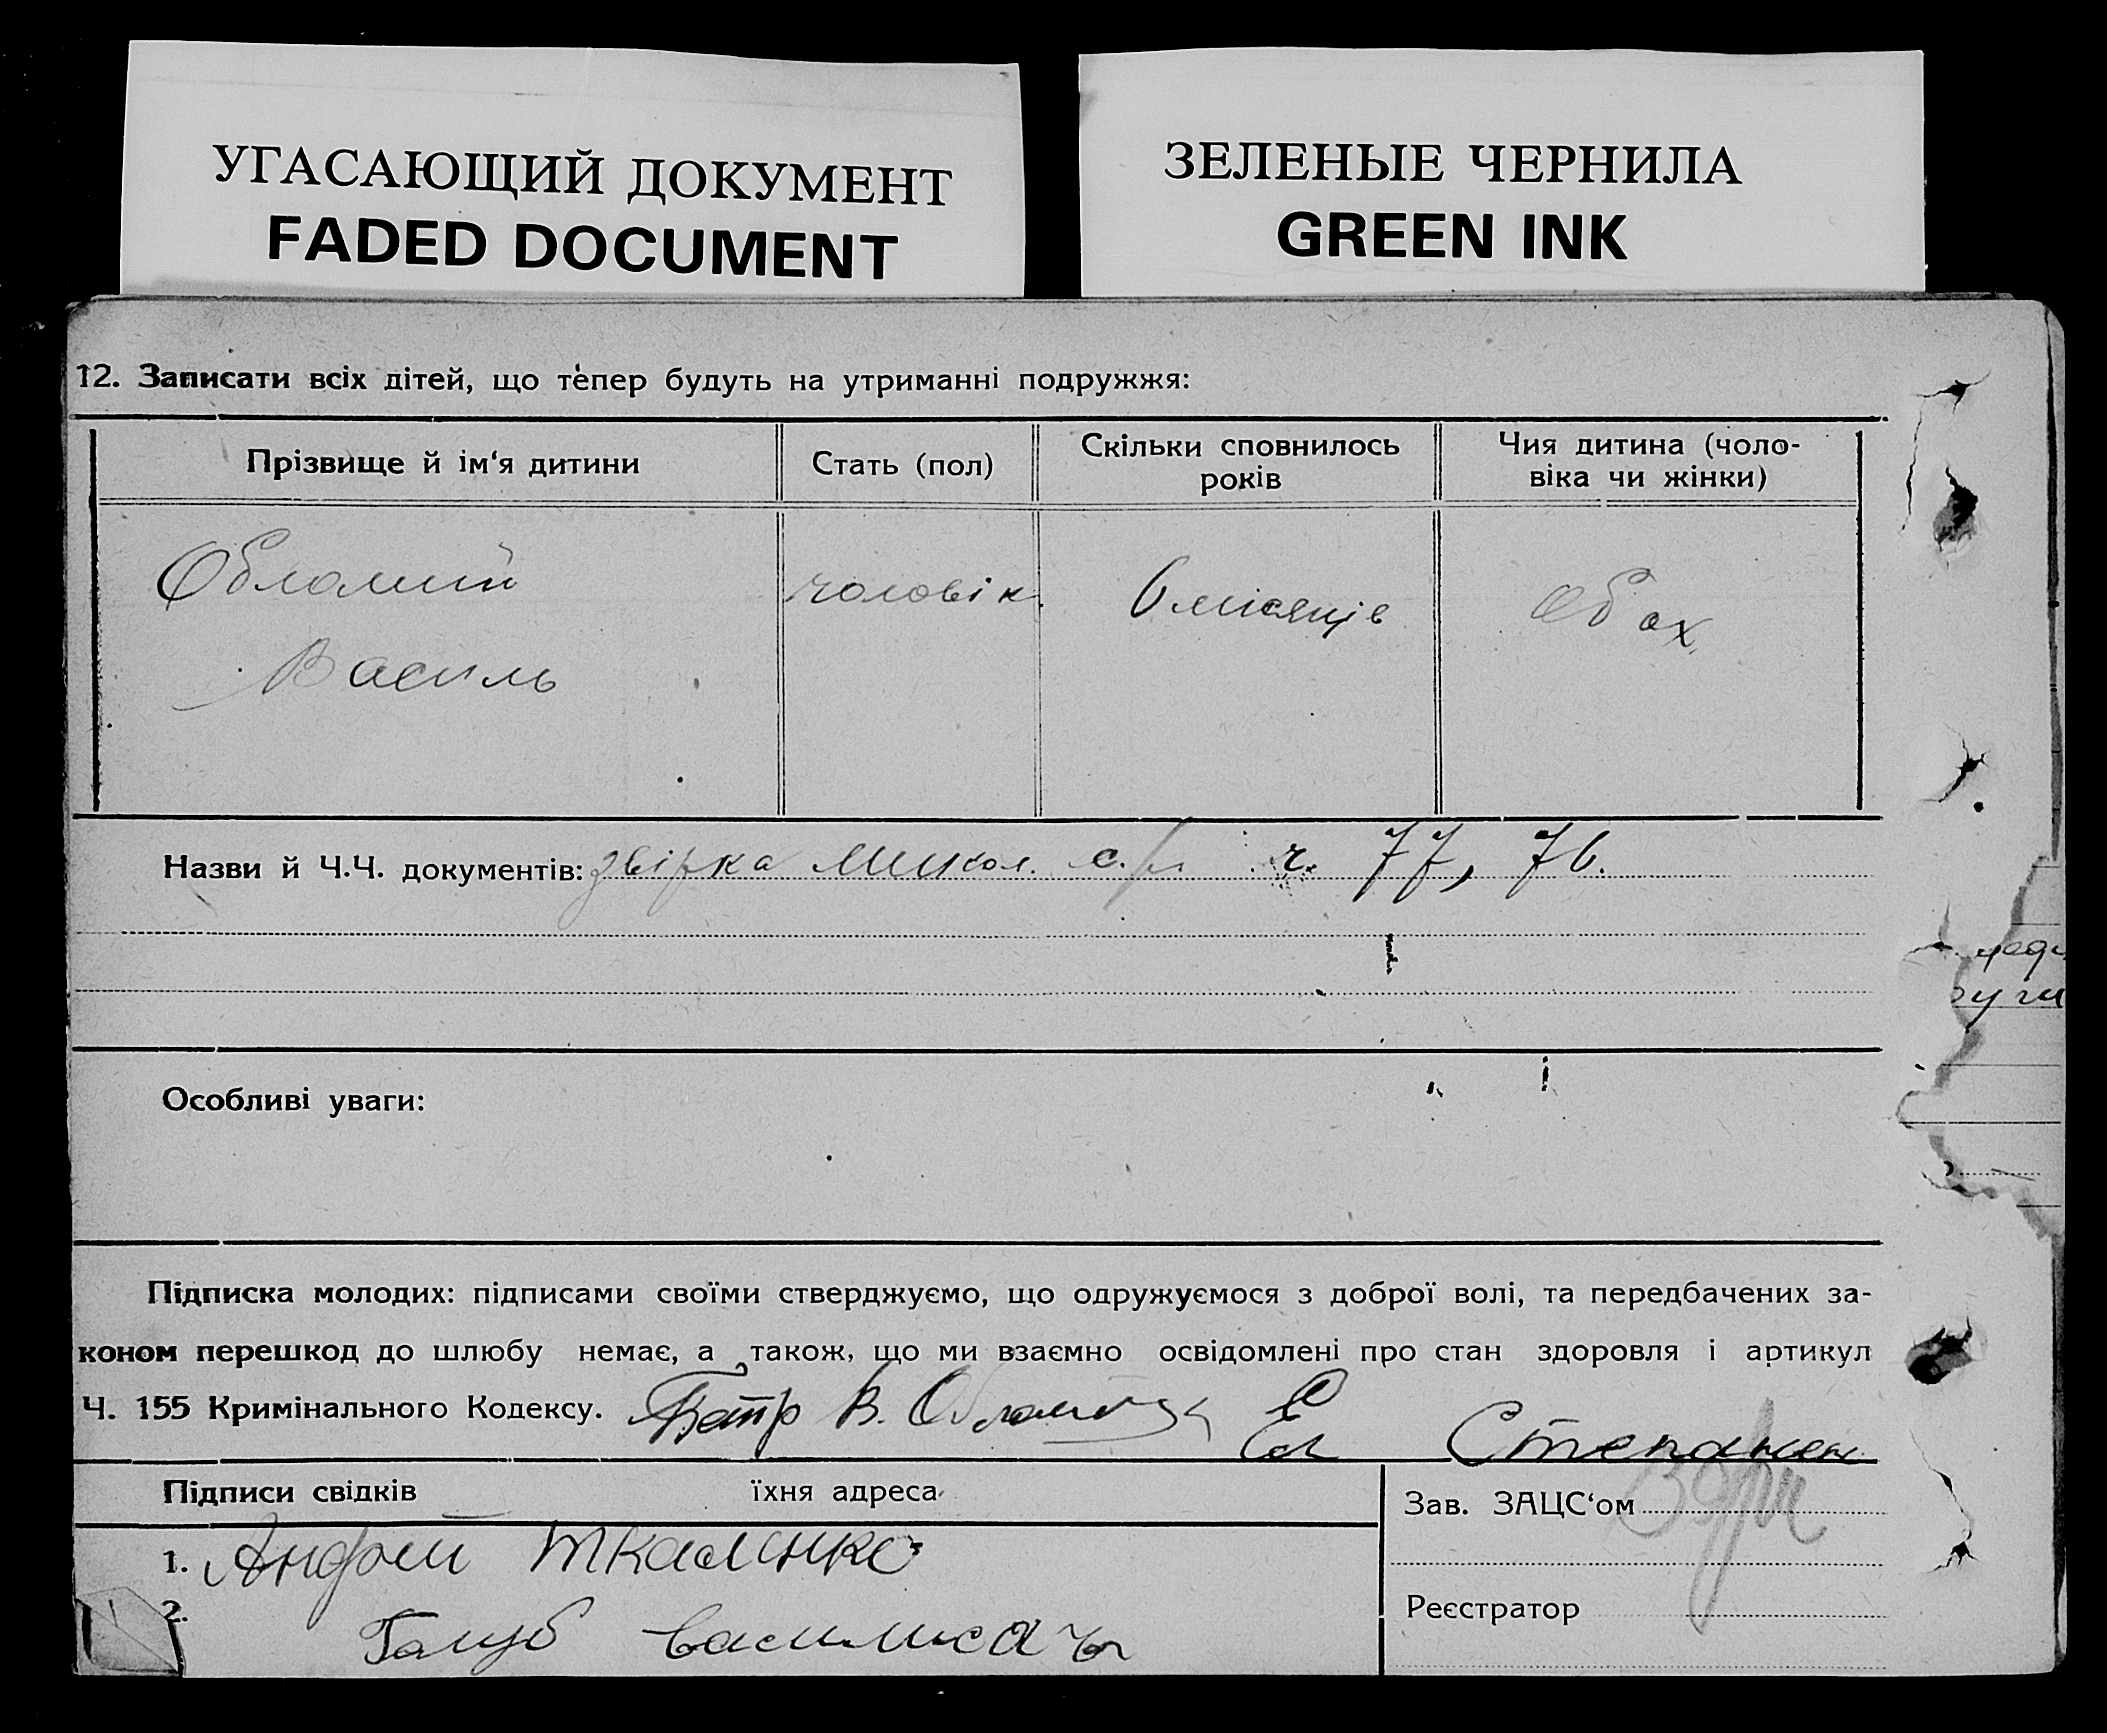 УГАСАЮЩИЙ ДОКУМЕНТ
FADED DOCUMENT
ЗЕЛЕНЫЕ ЧЕРНИЛА
GREEN INK
12. Записати всіх дітей, що тепер будуть на утриманні подружжя:
Прізвище й ім‘я дитини
Стать (пол)
Скільки сповнилось
років
Чия дитина (чоло-
віка чи жінки)
Обломий
Василь
чоловік.
6 місяців
Обох
Назви й Ч.Ч. документів: звірка Микол. с/р. ч. 77, 76.
Особливі уваги:
Підписка молодих: підписами своїми стверджуємо, що одружуємося з доброї волі, та передбачених за-
коном перешкод до шлюбу немає, а також, що ми взаємно освідомлені про стан здоровля і артикул
Ч. 155 Кримінального Кодексу. Петр В. Степанен
Підписи свідків
їхня адреса
Зав. ЗАЦС‘ом
1. Андрей Ткаленко
2. Голуб
Реєстратор